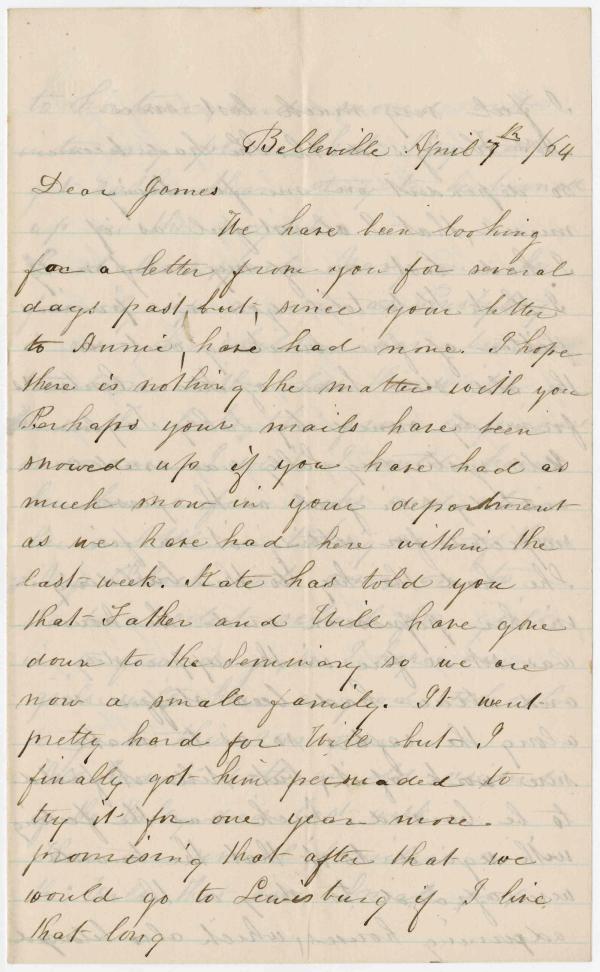 Belleville April 7th /64
Dear James
We have been looking
for a letter from you for several
days past, but, since your letter
to Annie, have had none. I hope
there is nothing the matter with you
Perhaps your mails have been
snowed up if you have had as
much snow in your department
as we have had here within the
last week. Kate has told you
that Father and Will have gone
down to the Seminary so we are
now a small family. It went
pretty hard for Will but I
finally got him persuaded to
try it for one year more.
promising that after that we
would go to Lewisburg if I live
that long